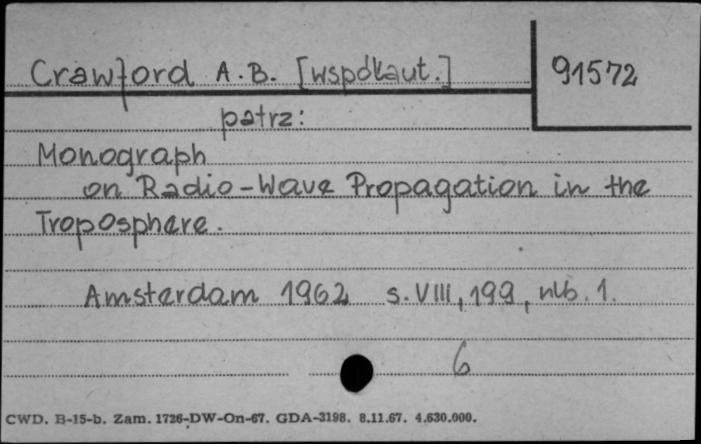 Crawford A.B. [współaut.]
91572
patrz:
Monograph
on Radio-Wave Propagation in the
Troposphere.
Amsterdam 1962 s. VIII, 199, nlb. 1.
6
CWD. B-15-b. Zam. 1726-DW-On-67. GDA-3198. 8.11.67. 4.630.000.